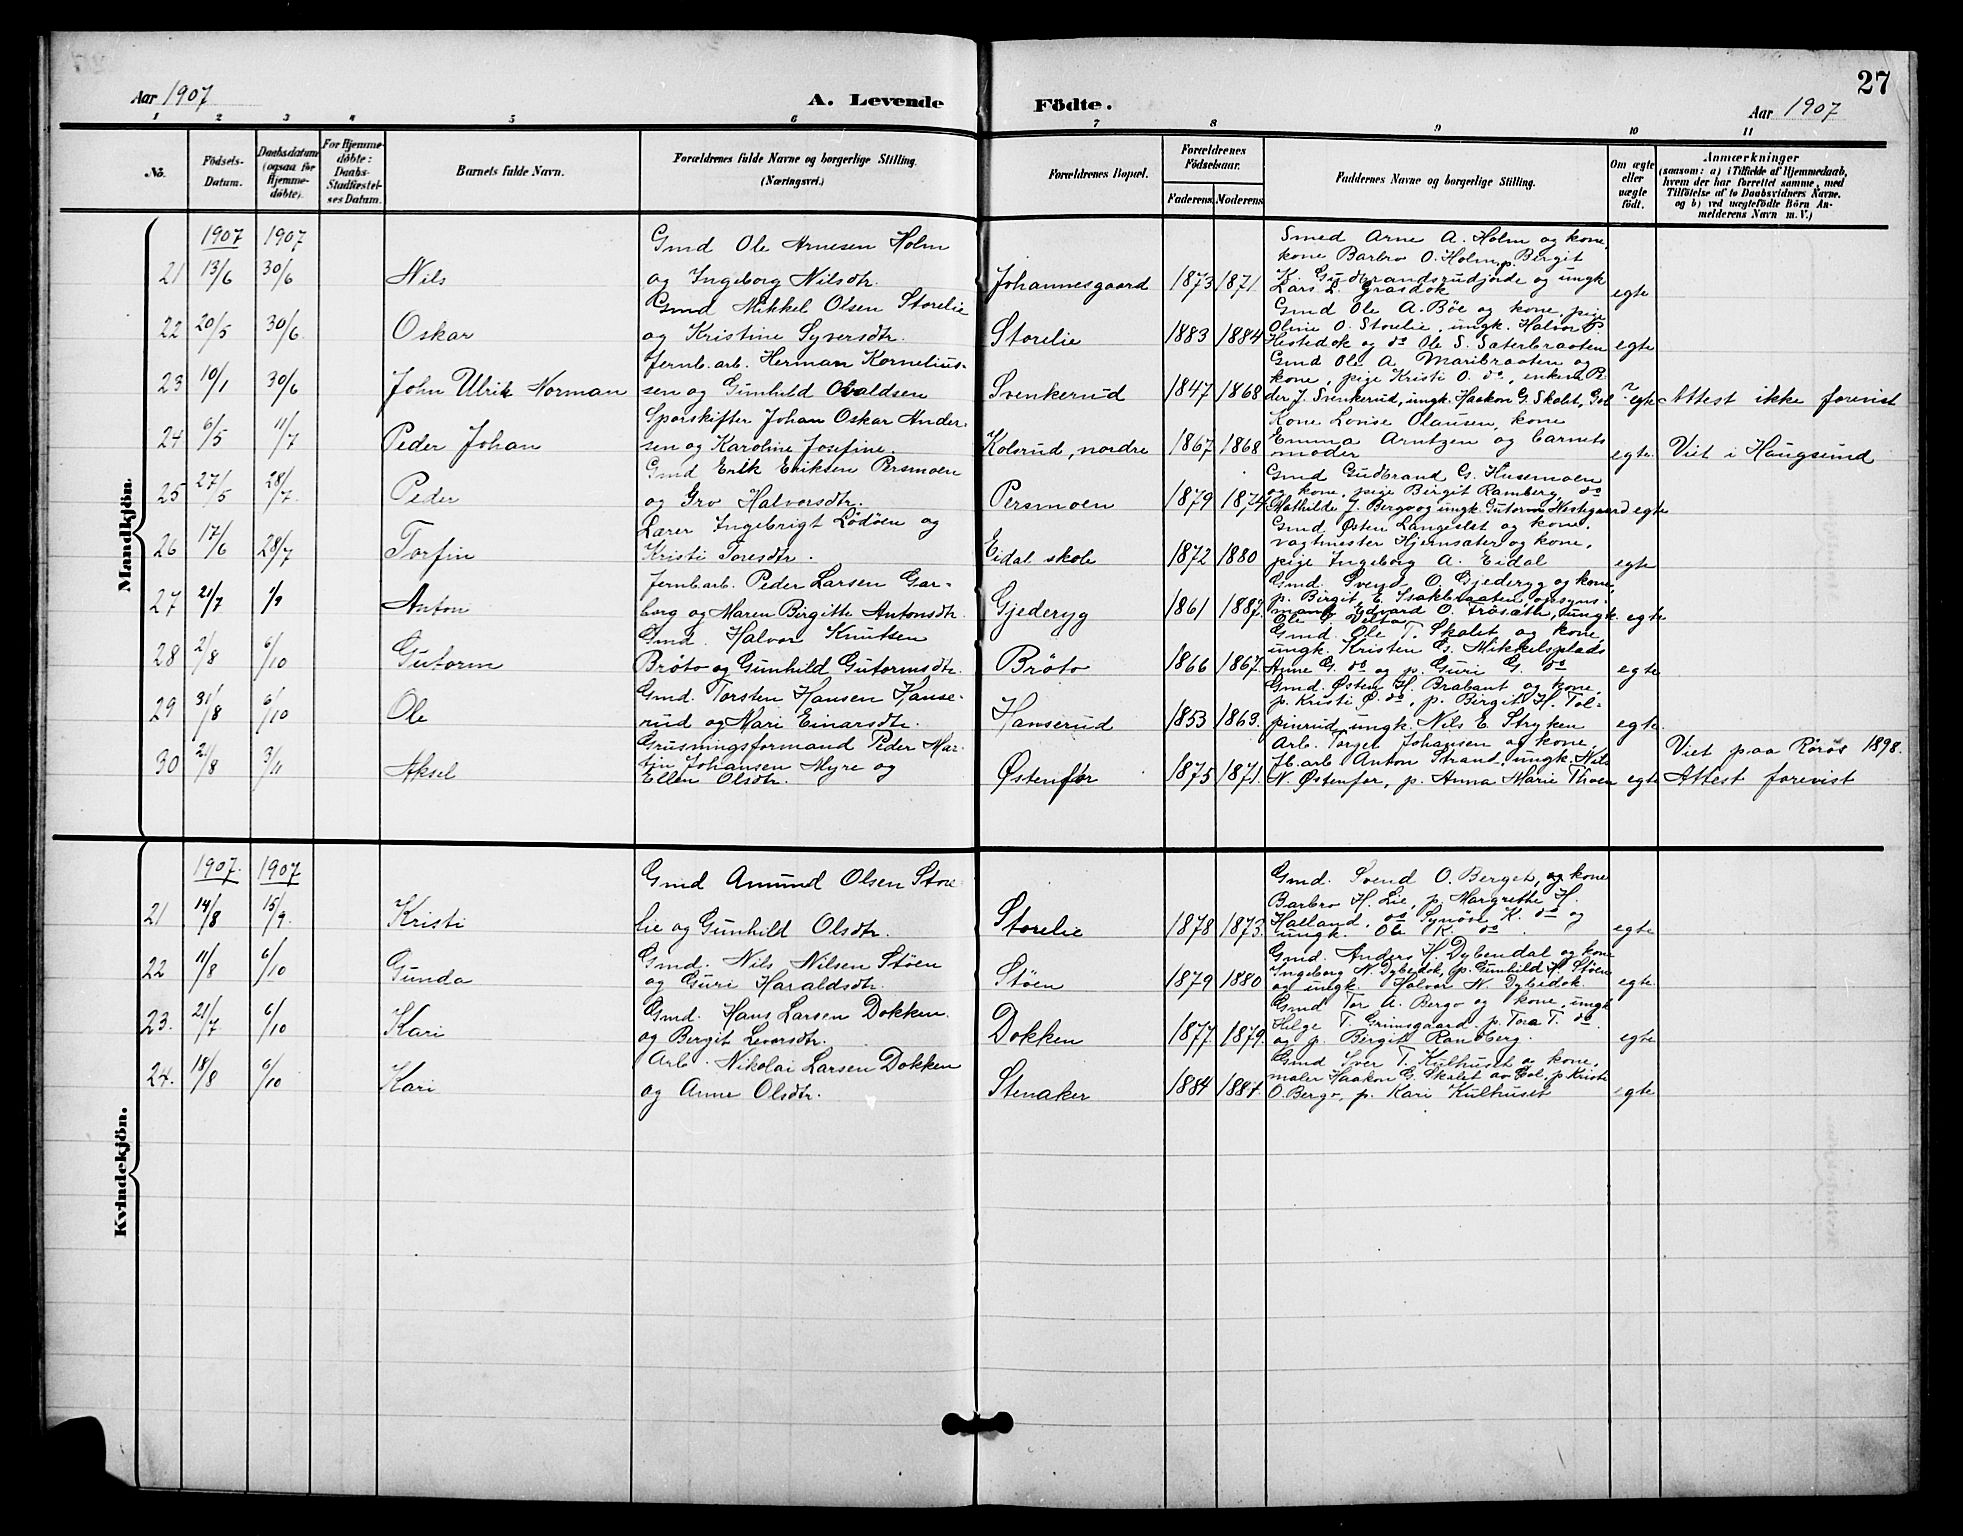 27
Aar 1907
A. Levende Födte.
Aar 1907
1 2 3 4 5 6 7 8 9 10 11
No.
Födsels-Datum.
Daabsdatum (ogsaa for Hjemmedöbte).
For Hjemmedøbte: Daabs-Stadfæstelses Datum.
Barnets fulde Navn.
Forældrenes fulde Navne og borgerlige Stilling.
(Næringsvei.)
Forældrenes Bopæl.
Forældrenes Födselsaar.
Faderens. Moderens.
Faddernes Navne og borgerlige Stilling.
Om ægte eller uægte födt.
Anmærkninger
(saasom: a) i Tilfælde af Hjemmedaab,
hvem der har forrettet samme, med
Tilföielse af to Daabsvidners Navne.
og b) ved uægtefödte Börn An-
melderens Navn m. V.)
Mandkjön.
1907 1907
21 13/6 30/6 Nils
Gmd Ole Arnesen Holm
og Ingeborg Nilsdtr.
Johannesgaard 1873 1871
Smed Arne A. Holm og kone,
kone Barbro O. Holm, p. Birgit
K. Gudbrandsrudjorde og ungk
Lars L. Grasdok
egte
22 20/5 30/6 Oskar
Gmd Mikkel Olsen Storelie
og Kristine Syversdtr.
Storelie 1883 1884
Gmd Ole A. Böe og kone, pige
Oline O. Storelie, ungk. Halvor P.
Hestedok og do Ole S. Sæterbraaten
egte
23 10/1 30/6 John Ulrik Norman
Jernb.arb. Herman Kornelius-
sen og Gunhild Olvaldsen
Svenkerud 1847 1868
Gmd Ole A. Maribraaten og
kone, pige Kristi O. do, enkem. P-
der J. Svenkerud, ungk. Haakon G. Skolet, Gol
? egte Attest ikke forevist
24 6/5 11/7 Peder Johan
Sporskifter Johan Oskar Ander-
sen og Karoline Josefine.
Kolsrud, nordre 1867 1868
Kone Lovise Olausen, kone
Emma Arntzen og barnets
moder
egte. Viet i Haugsund
25 27/5 28/7 Peder
Gmd Erik Eriksen Persmoen
og Gro Halvorsdtr.
Persmoen 1879 1874
Gmd Gudbrand G. Husemoen
og kone, pige Birgit Ramberg, do
Mathilde J. Bergo og ungk. Gutorm Hestegaard
egte
26 17/6 28/7 Torfin
Lærer Ingebrigt Lödöen og
Kristi Toresdtr.
Eidal skole 1872 1880
Gmd. Østen Langeslet og kone,
vagtmester Hjernsæter og kone,
pige Ingeborg A. Eidal
egte
27 21/7 1/9 Anton
Jernb.arb. Peder Larsen Gar-
borg og Maren Birgitte Antonsdtr.
Gjederyg 1861 1887.
Gmd. Svend O. Gjederyg og kone,
p. Birgit E. Isakbraaten, opsyns-
mand Edvard O. Frösæter, ungk
Ole O. Velta
egte
28 2/8 6/10 Gutorm
Gmd. Halvor Knutsen
Bröto og Gunhild Gutormsdtr.
Bröto 1866 1867.
Gmd. Ole T. Skolet og kone,
ungk. Kristen G. Mikkelsplads
Anne G. do og p. Guri G. do
egte
29 31/8 6/10 Ole
Gmd. Torsten Hansen Hanse-
rud og Mari Einarsdtr.
Hanserud 1853 1863.
Gmd. Østen H. Brabant og kone,
p. Kristi Ø. do, p. Birgit H. Tol-
pinrud, ungk. Nils E. Stryken
egte.
30 21/8 3/11 Aksel
Grusningsformand Peder Mar-
tin Johansen Myre og
Ellen Olsdtr.
Østenfor 1875 1871.
Arb. Torger Johansen og kone,
J.b.arb Anton Strand, ungk. Nils
N. Østenfor, p. Anna Marie Thoen
egte
Viet paa Röros 1898.
Attest forevist
Kvindekjön.
1907. 1907
21 14/8 15/9. Kristi
Gmd Amund Olsen Store-
lie og Gunhild Olsdtr.
Storelie 1878 1873.
Gmd. Svend O. Berget, og kone
Barbro H. Lie, p. Margrethe H.
Halland, do Synöve K. do og
ungk. Ole K. do
egte
22 11/8 6/10 Gunda
Gmd. Nils Nilsen Stöen
og Guri Haraldsdtr.
Stöen 1879 1880
Gmd. Anders H. Dybendal og kone
Ingeborg N. Dybedok, p. Gunhild H. Stöen
og ungk. Halvor N. Dybedok.
egte.
23. 21/7 6/10 Kari
Gmd. Hans Larsen Dokken.
og Bergit Leversdtr.
Dokken 1877 1879.
Gmd Tor A. Bergo og kone, ungk
Helge T. Grimsgaard, p. Tora T. do.
og p. Bergit Ramberg.
egte
24. 18/8 6/10 Kari
Arb. Nikolai Larsen Dokken
og Anne Olsdtr.
Stenaker 1884 1884.
Gmd Iver T. Kulhuset og kone,
maler Haakon G. Skolet av Gol, p. Kristi
O. Bergo, p. Kari Kulhuset
egte